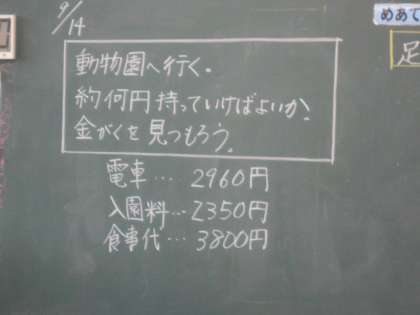 9/14
めあて
足
動物園へ行く。
約何円持っていけばよいか、
金がくを見つもろう。
電車…2960円
入園料…2350円
食事代…3800円